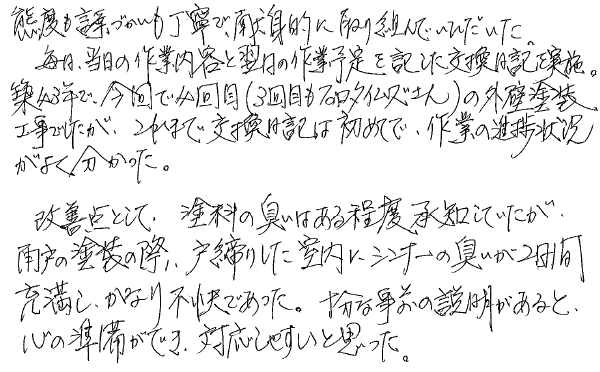 態度も言葉づかいも丁寧で、献身的に取り組んでいただいた。
毎日、当日の作業内容と翌日の作業予定を記した交換日記を実施。
築43年で、今回で4回目(3回目もプロタイムズさん)の外壁塗装
工事でしたが、これまで交換日記は初めてで、作業の進捗状況
がよく分かった。
改善点として、塗料の臭いはある程度承知していたが、
雨戸の塗装の際、戸締りした室内にシンナーの臭いが2日間
充満し、かなり不快であった。十分な事前の説明があると、
心の準備ができ、対応しやすいと思った。